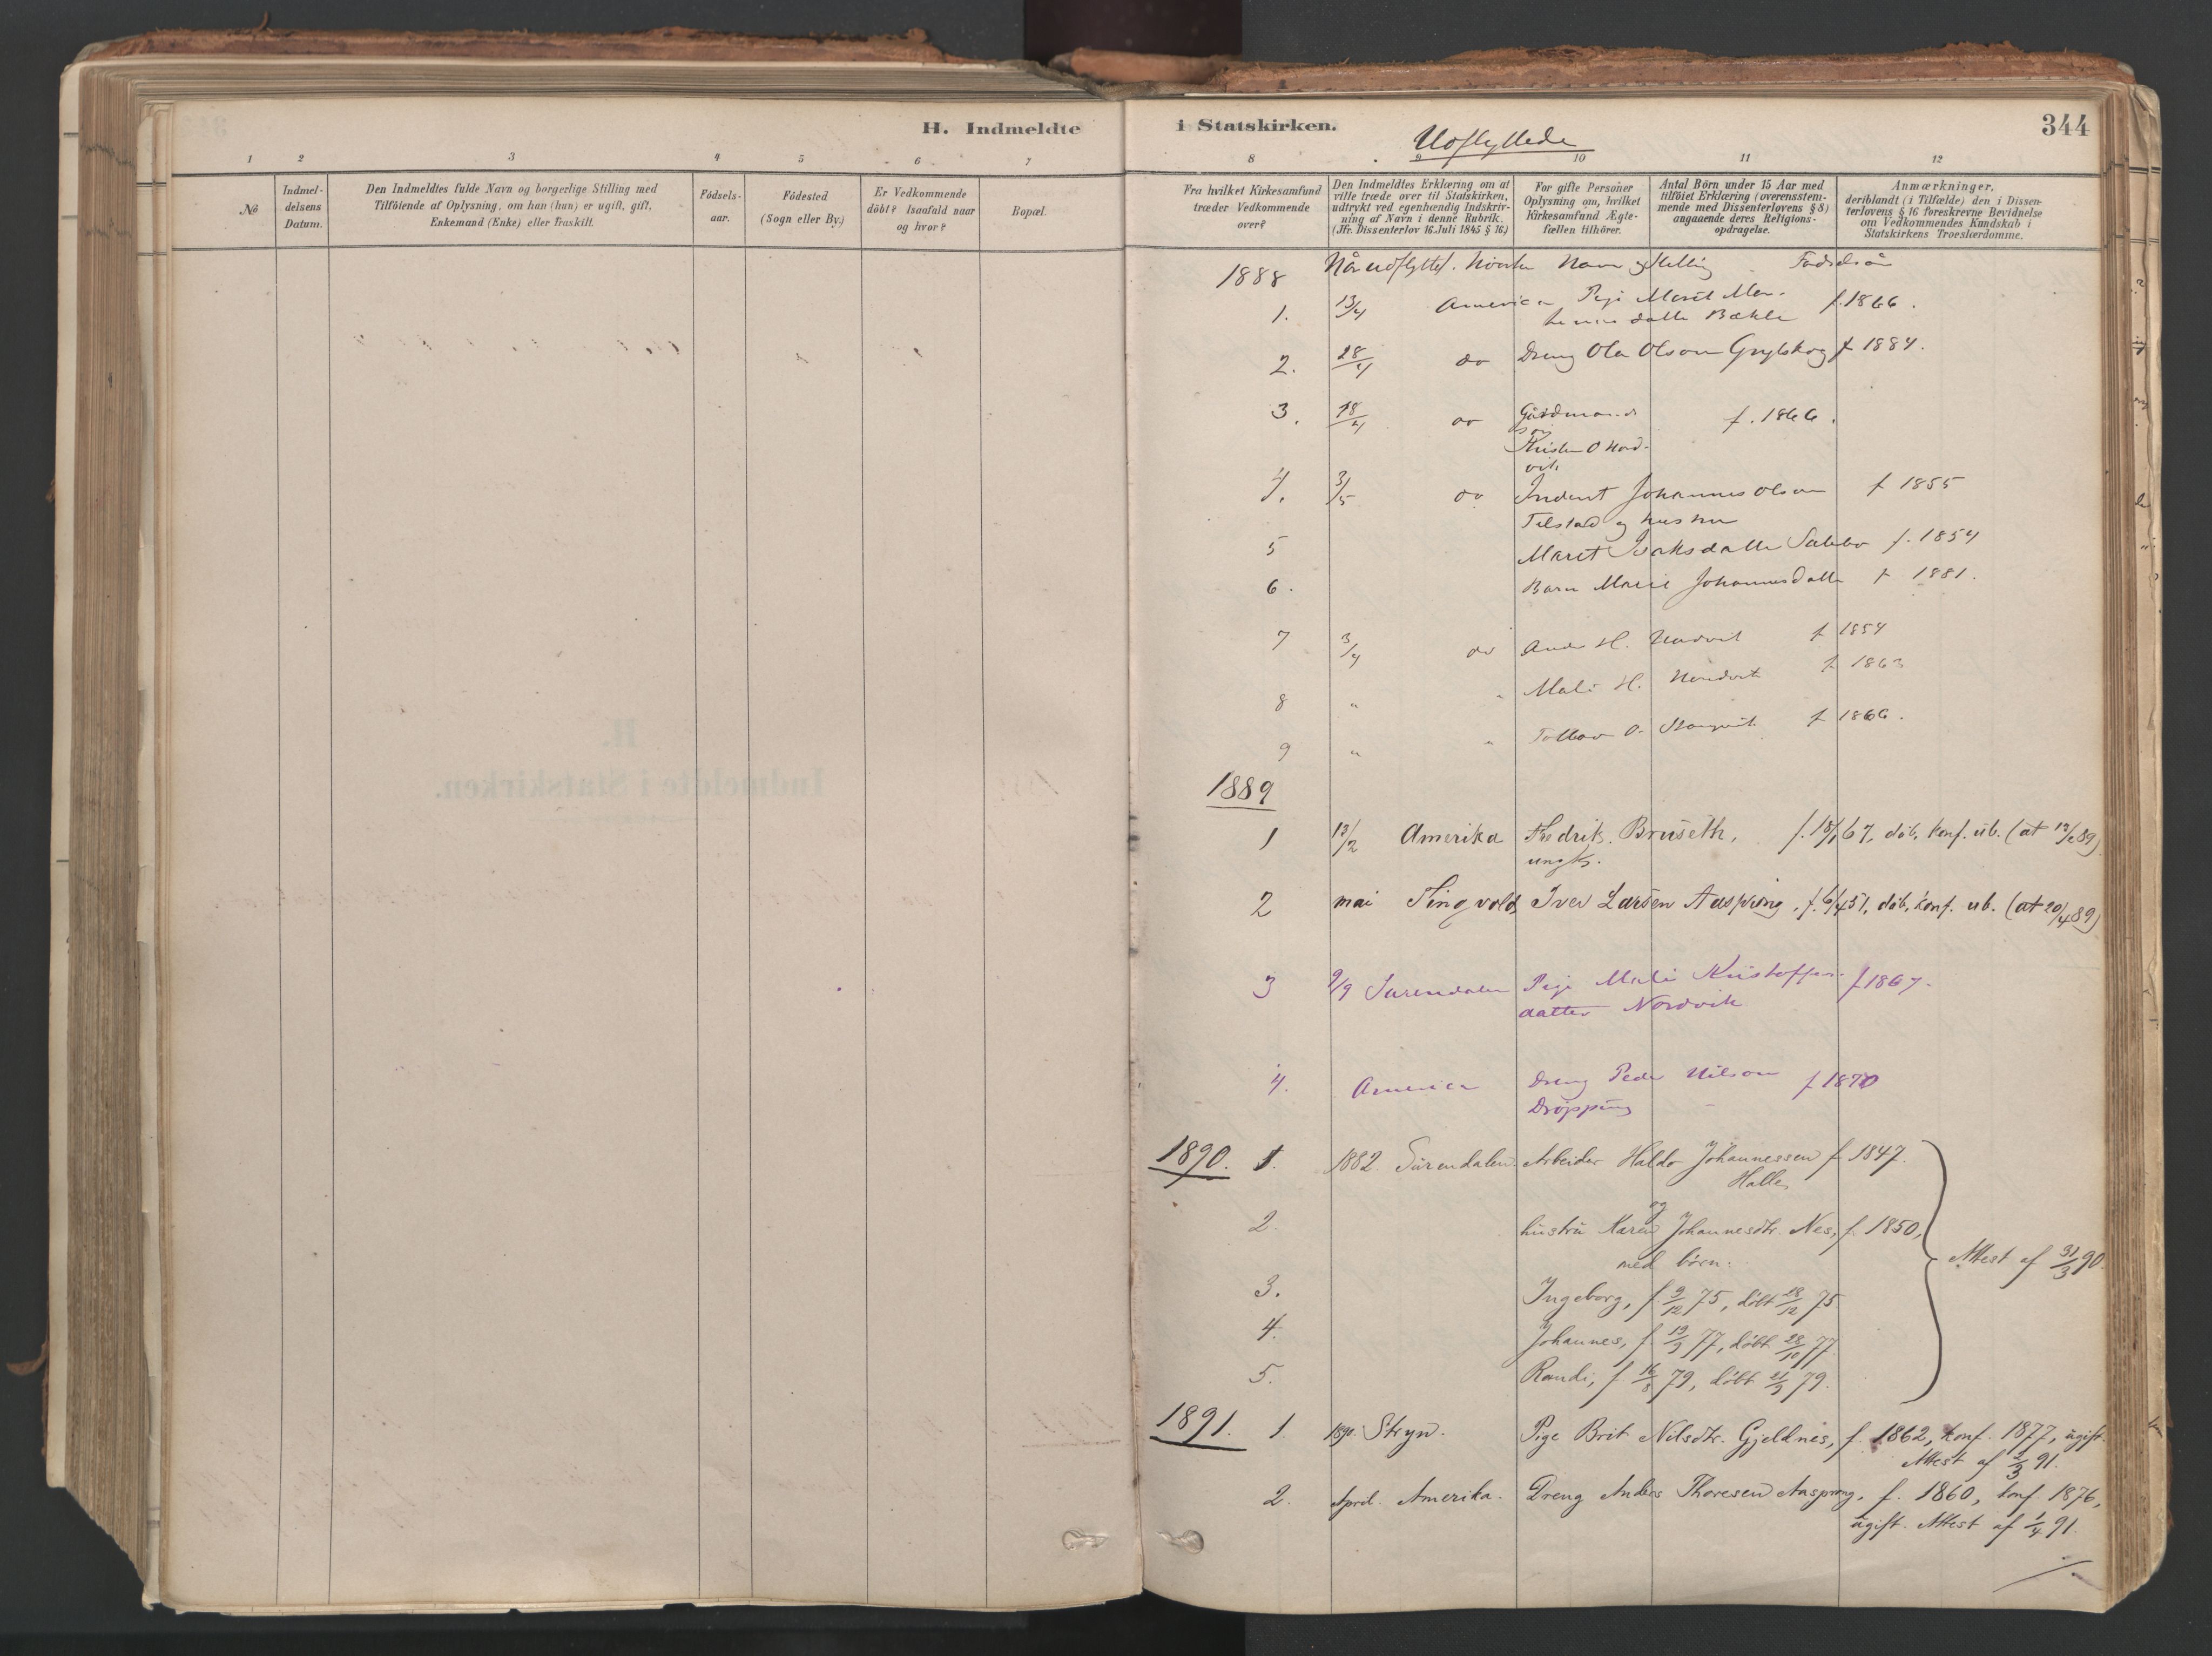 H. Indmeldte
1 2 3 4 5 6 7
No
Indmel-
delsens
Datum.
Den Indmeldtes fulde Navn og borgerlige Stilling med
Tilföiende af Oplysning, om han (hun) er ugift, gift,
Enkemand (Enke) eller fraskilt.
Födsels-
aar.
Födested
(Sogn eller By.)
Er Vedkommende
döbt? Isaafald naar
og hvor?
Bopæl.
i Statskirken.
Udflyttede
344
8 9 10 11 12
Fra hvilket Kirkesamfund
træder Vedkommende
over?
Den Indmeldtes Erklæring om at
ville træde over til Statskirken,
udtrykt ved egenhændig Indskriv-
ning af Navn i denne Rubrik.
(Jfr. Dissenterlov 16. Juli 1845 § 16.)
For gifte Personer
Oplysning om, hvilket
Kirkesamfund Ægte-
fællen tilhörer.
Antal Börn under 15 Aar med
tilföiet Erklæring (overensstem-
mende med Dissenterlovens § 8)
angaaende deres Religions-
opdragelse.
Anmærkninger,
deriblandt (i Tilfælde) den i Dissen-
terlovens § 16 foreskrevne Bevidnelse
om Vedkommendes Kundskab i
Statskirkens Troeslærdomme.
1888 Når udflyttet. hvorhen Navn og Stilling Fødselsår
1. 13/4 America Pige Marit
Bække f. 1866.
2. 28/4 do Dreng Ola Olson f 1884.
3. 28/4 do Gårdmands f. 1866.
søn
4. 3/5 do Johannes Olson f 1855
og hustru
5 Maret Isaksdatter f. 1854
6. Barn Marie Johannesdatter f 1881.
7 3/4 do H. f 1854
8 " " Mali H. f 1863
9 " " O. f 1866.
1889
1 13/2 Amerika Fredrik Bruseth, f. 18/1 67, döb, konf. ub. (at 13/2 89)
ungk.
2 mai Tingvold, Iver Larsen Aasprong, f. 6/4 51, döb, konf. ub. (at 20/4 89)
3 9/9 Surendalen Pige Mali Kristoffer- f 1867.
datter Nordvik
4. America Dreng Peder Nilson f 1870
Dröpping
1890. 1. 1882. Surendalen. Arbeider Haldo Johannessen f. 1847.
Halle,
og
2. hustru Karen Johannesdtr. Nes, f. 1850,
med børn:
Attest af 31/3 90.
3. Ingeborg, f 9/12 75, döbt 28/12 75.
4. Johannes, f. 19/9 77, döbt 28/10 77.
5. Randi, f. 16/8 79, döbt 21/9 79.
1891. 1. 1890. Stryn. Pige Brit Nilsdtr. Gjeldnes, f. 1862, konf. 1877, ugift.
Attest af 2/3 91.
2. April. Amerika. Dreng Anders Thoresen Aasprong, f. 1860, konf. 1876,
ugift. Attest af 1/4 91.